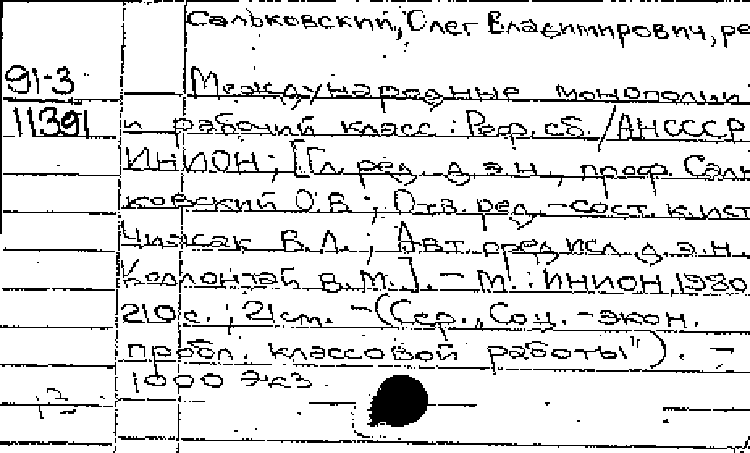 Сальковский, Олег Владимирович, ре
91-3
11391
Международные монополии
и рабочий класс : Реф. сб. / АН СССР
ИНИОН ; [Гл. ред. д.э.н., проф. Саль
ковский О.В. ; Отв. ред.-сост. к.ист
Чижак В.Л. ; Авт. предисл. д.э.н.
Коллонтай В.М.]. - М. : ИНИОН, 1980
210 с. ; 21 см. - (Сер. "Соц.-экон.
пробл. классовой работы"). -
1000 экз